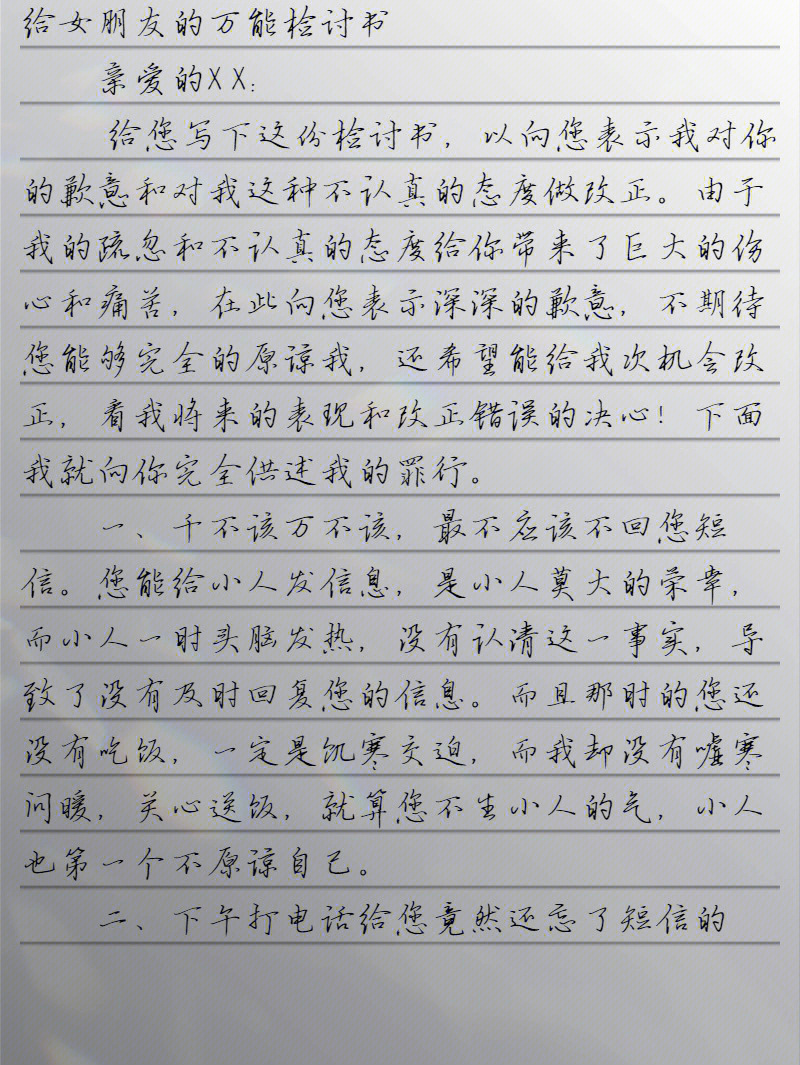 给女朋友的万能检讨书
亲爱的XX:
给您写下这份检讨书，以向您表示我对你
的歉意和对我这种不认真的态度做改正。由于
我的疏忽和不认真的态度给你带来了巨大的伤
心和痛苦，在此向您表示深深的歉意，不期待
您能够完全的原谅我，还希望能给我次机会改
正，看我将来的表现和改正错误的决心！下面
我就向你完全供述我的罪行。
一、千不该万不该，最不应该不回您短
信。您能给小人发信息，是小人莫大的荣幸，
而小人一时头脑发热，没有认清这一事实，导
致了没有及时回复您的信息。而且那时的您还
没有吃饭，一定是饥寒交迫，而我却没有嘘寒
问暖，关心送饭，就算您不生小人的气，小人
也第一个不原谅自己。
二、下午打电话给您竟然还忘了短信的